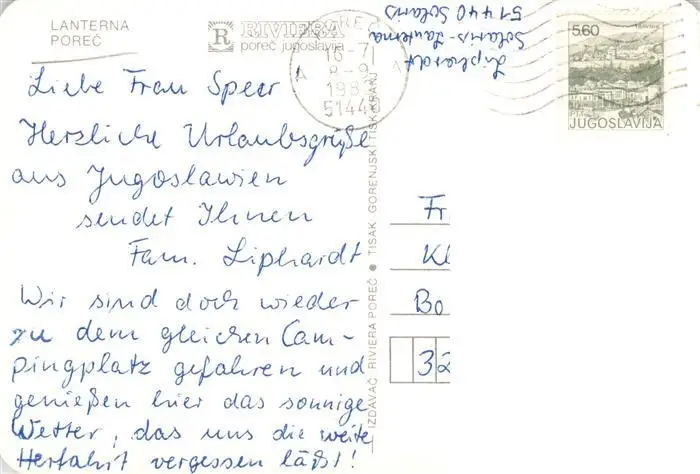 LANTERNA
POREČ
R RIVIERA
poreč jugoslavija
16-7
8-9
51440
A A
Liphardt
Solaris-Lanterna
51440 Solaris
5,60
JUGOSLAVIJA
Liebe Frau Speer
Herzliche Urlaubsgrüße
aus Jugoslawien
sendet Ihnen
Fam. Liphardt
Wir sind doch wieder
zu dem gleichen Cam-
pingplatz gefahren und
genießen hier das sonnige
Wetter, das uns die weite
Herfahrt vergessen läßt!
IZDAVAČ RIVIERA POREČ ● TISAK GORENJSKI TISK KRANJ
Fr
Kl
Bo
32